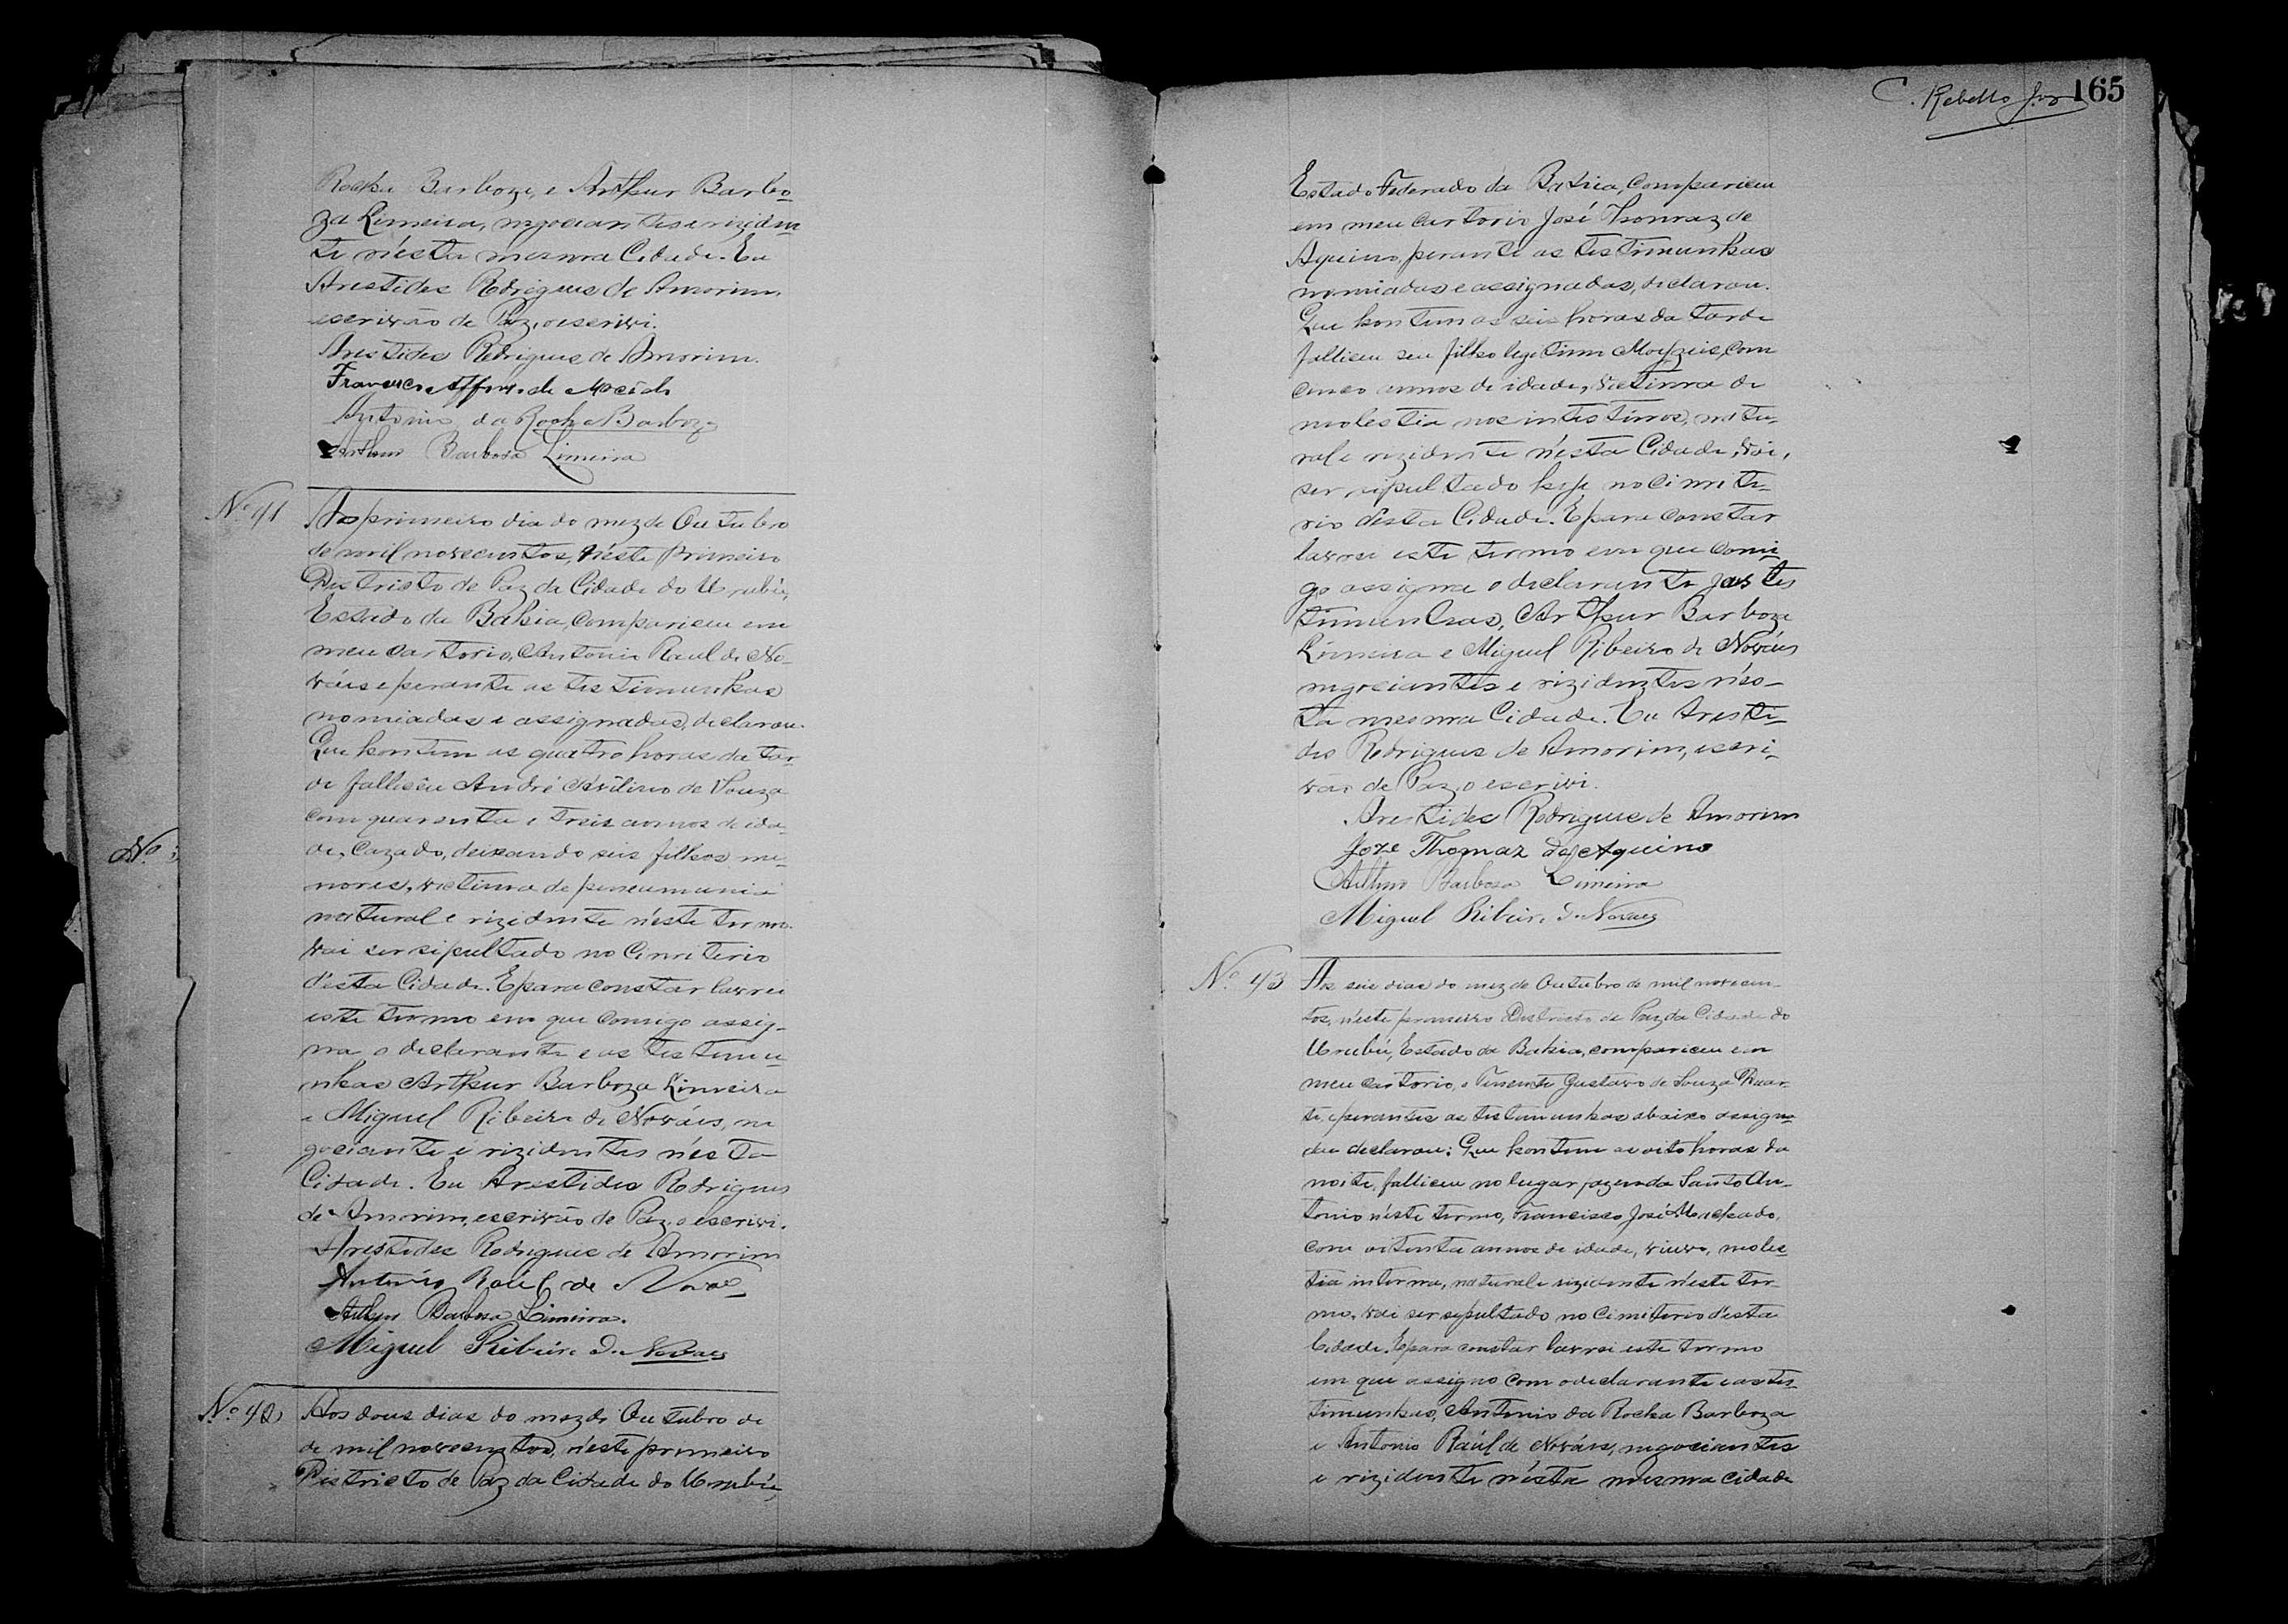 Rocha Barboza, e Arthur Barbo-
za Limeira, negociantes e riziden-
te n'ésta mesma Cidade. Eu
Arestides Rodrigues de Amorim,
escrivão de Paz, o escrivi.
Arestides Rodrigues de Amorim.
Francisco Affon. de Macêdo
Antonio da Rocha Barboza
Arthur Barbosa Limeira
Nº 41
Ao primeiro dia do mez de Outubro
de mil novecentos, n'éste primeiro
Districto de Paz da Cidade do Urubú,
Estado da Bahia, compariceu em
meu Cartorio, Antonio Raul de No-
váis e perante as testimunhas
nomiadas e assignadas, declarou.
Que hontem as quatro horas da tar-
de falliceu André Avilino de Souza
com quarenta e treis annos de ida-
de, Cazado, deixando seis filhos me-
nores, victima de pneumania
natural e rizidente n'éste termo.
vai ser sipultado no Cimiterio
d'ésta Cidade. E para constar lavrei
este termo em que comigo assig-
na o declarante e as testimu-
nhas Arthur Barboza Limeira
e Miguel Ribeiro de Nováis, ne
gociante e rizidentes n'ésta
Cidade. Eu Arestides Rodrigues
de Amorim, escrivão de Paz, o escrivi.
Arestides Rodrigues de Amorim
Antonio Raúl de Novaes
Arthur Barbosa Limeira.
Miguel Ribeiro de Novaes
Nº 42
Aos dous dias do mez de Outubro de
de mil novecentos, n'éste primeiro
Districto de Paz da Cidade do Urubú,
Nº
C. Rebello 165
Estado Federado da Bahia, compariceu
em meu Cartorio José Thomaz de
Aquino, perante as testimunhas
nomiadas e assignadas, declarou.
Que hontem as seis horas da tarde
falliceu seu filho legitimo Moyzeis, com
cinco annos de idade, victima de
molestia nos intestinos, natu-
ral e rizidente n'ésta Cidade, vai,
ser sipultado hoje no Cimite-
rio désta Cidade. E para constar
lavrei este termo em que comi-
go assigna o declarante e as tes
timunhas, Arthur Barboza
Limeira e Miguel Ribeiro de Nováis
negociantes e rizidentes n'és-
ta mesma Cidade. Eu Aresti-
des Rodrigues de Amorim, escri-
vão de Paz, o escrivi.
Arestides Rodrigues de Amorim
Joze Thomaz de Aquino
Arthur Barbosa Limeira
Miguel Ribeiro de Novaes
Nº 43
Aos seis dias do mez de Outubro de mil novecen-
tos, n'éste primeiro Districto de Paz da Cidade do
Urubú, Estado da Bahia, compariceu em
meu Cartorio, o Tenente Gustavo de Souza Duar-
te, e perantes as testimunhas abaixo assigna-
das declarou: Que hontem as oito horas da
noite, falliceu no lugar fazenda Santo An-
tonio n'éste termo, Francisco José Machado,
com oitenta annos de idade, viuvo, moles-
tia interna, natural e rizidente n'éste ter-
mo, vai ser sepultado no Cimiterio d'ésta
Cidade. E para constar lavrei este termo
em que assigno com o declarante e as tes-
timunhas, Antonio da Rocha Barboza
e Antonio Raúl de Nováis, negociantes
e rizidente n'ésta mesma Cidade